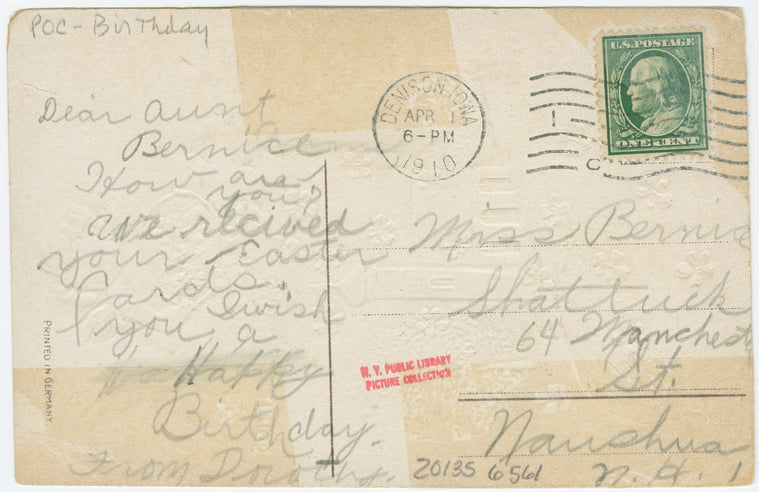 POC - Birthday
DENISON, IOWA
APR 1
6-PM
1910
U.S. POSTAGE
ONE CENT
Dear Aunt
Bernice
How are
you?
We recived
your Easter
Cards.
I wish
you a
Happy
Birthday.
From Dorothy.
Miss Bernice
Shattuck
64 Manchester
St.
Naushua
N. H.
PRINTED IN GERMANY
N. Y. PUBLIC LIBRARY
PICTURE COLLECTION
20135 6561